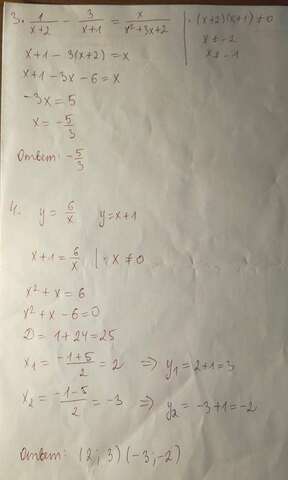 3. 1/(x+2) - 3/(x+1) = x/(x²+3x+2) | · (x+2)(x+1) ≠ 0
x ≠ -2
x ≠ -1
x+1 - 3(x+2) = x
x+1 - 3x - 6 = x
-3x = 5
x = -5/3
Ответ: -5/3
4. y = 6/x y = x+1
x+1 = 6/x | · x ≠ 0
x² + x = 6
x² + x - 6 = 0
D = 1 + 24 = 25
x₁ = (-1+5)/2 = 2 ⇒ y₁ = 2+1 = 3
x₂ = (-1-5)/2 = -3 ⇒ y₂ = -3+1 = -2
Ответ: (2; 3) (-3; -2)